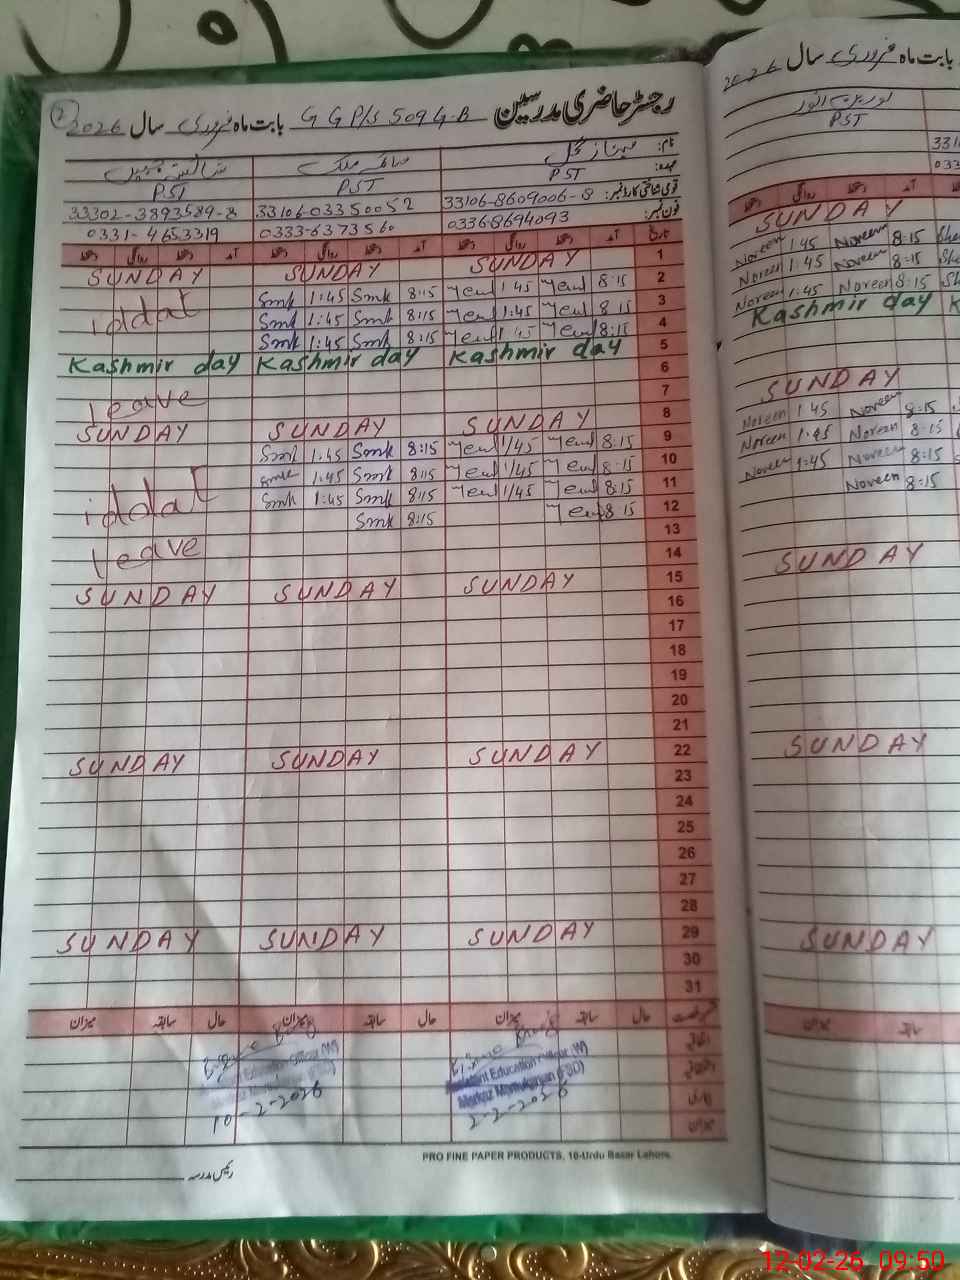 رجسٹر حاضری مدرسین G G P/S 509 G.B بابت ماہ فروری سال 2026
نام: مہناز گل
عہدہ: PST PST PST
قومی شناختی کارڈ نمبر: 33106-8609006-8 33106-03350052 33302-3893589-8
فون نمبر: 03368694093 0333-6373560 0331-4653319
تاریخ آمد دستخط روانگی دستخط آمد دستخط روانگی دستخط آمد دستخط روانگی دستخط
1 SUNDAY SUNDAY SUNDAY
2 8:15 1:45 8:15 Smk 1:45 Smk
iddat
3 8:15 1:45 8:15 Smk 1:45 Smk
4 8:15 1:45 8:15 Smk 1:45 Smk
5 Kashmir day Kashmir day Kashmir day
6
7 leave
8 SUNDAY SUNDAY SUNDAY
9 8:15 1/45 8:15 Smk 1:45 Smk
10 8:15 1/45 8:15 Smk 1:45 Smk
iddat
11 8:15 1/45 8:15 Smk 1:45 Smk
12 8:15 8:15 Smk
13 leave
14
15 SUNDAY SUNDAY SUNDAY
16
17
18
19
20
21
22 SUNDAY SUNDAY SUNDAY
23
24
25
26
27
28
29 SUNDAY SUNDAY SUNDAY
30
31
حال سابقہ میزان حال سابقہ میزان حال سابقہ میزان
اتفاقیہ
بیماری
میزان
Assistant Education Officer (W)
Markaz Mamukanjan (FSD)
2-2-2026
Assistant Education Officer (W)
10-2-2026
PRO FINE PAPER PRODUCTS, 16-Urdu Bazar Lahore.
رئیس مدرسہ
بابت ماہ فروری سال 2026
نورین انور
PST
SUNDAY
8:15 Noreen 1:45 Noreen
8:15 Noreen 1:45 Noreen
8:15 Noreen 1:45 Noreen
Kashmir day
SUNDAY
8:15 Noreen 1:45 Noreen
8:15 Noreen 1:45 Noreen
8:15 Noreen 1:45 Noreen
8:15 Noreen
SUNDAY
SUNDAY
SUNDAY
سابقہ میزان
12-02-26 09:50